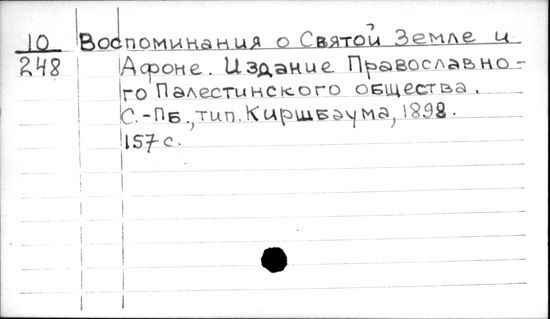 10 Воспоминания о Святой Земле и
248 Афоне. Издание Православно-
го Палестинского общества.
С.-Пб., тип. Киршбаума, 1898.
157 с.